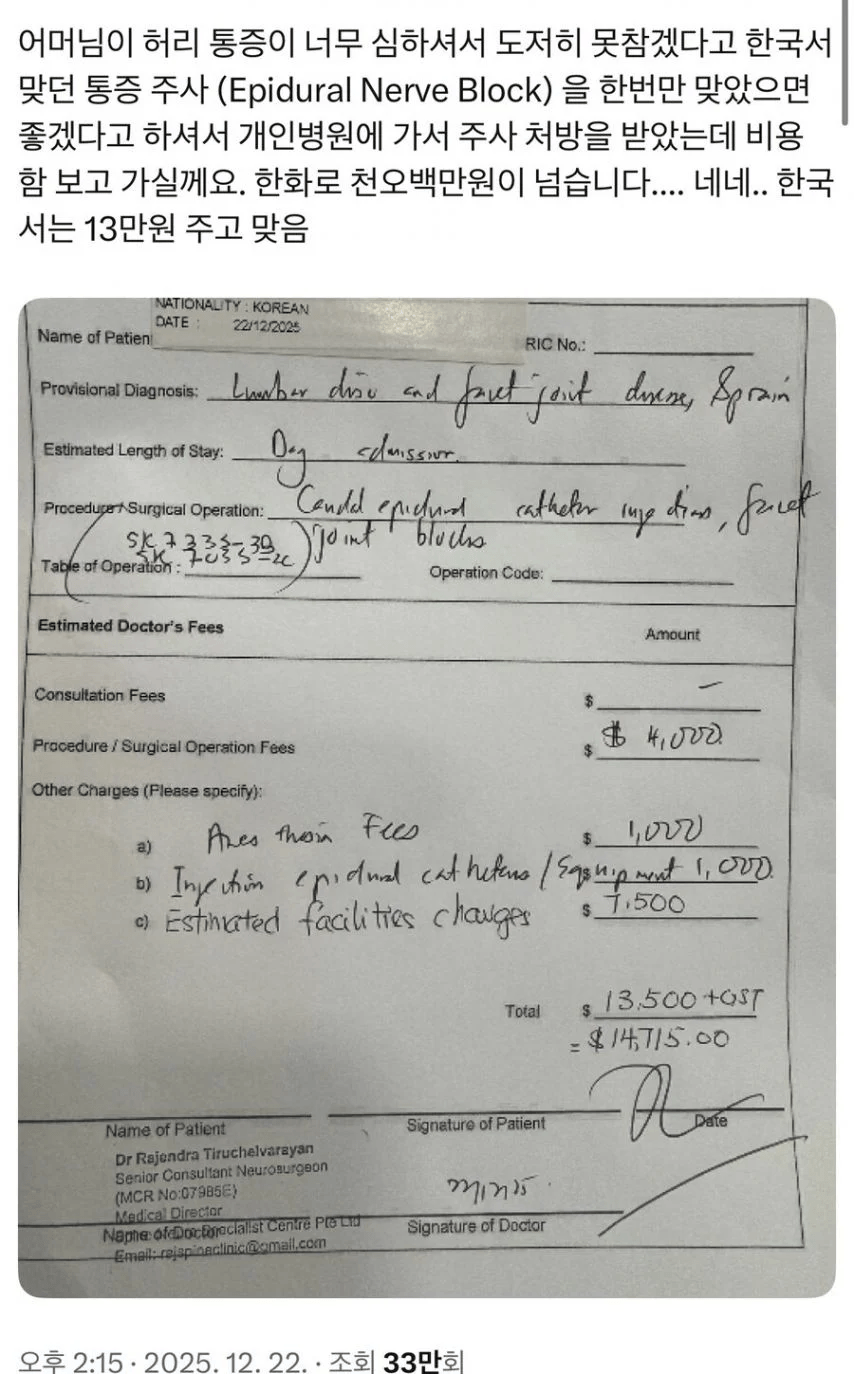 어머님이 허리 통증이 너무 심하셔서 도저히 못참겠다고 한국서
맞던 통증 주사 (Epidural Nerve Block) 을 한번만 맞았으면
좋겠다고 하셔서 개인병원에 가서 주사 처방을 받았는데 비용
함 보고 가실께요. 한화로 천오백만원이 넘습니다.... 네네.. 한국
서는 13만원 주고 맞음
NATIONALITY : KOREAN
DATE : 22/12/2025
Name of Patien
RIC No.:
Provisional Diagnosis: Lumbar disc and facet joint disease, Sprain
Estimated Length of Stay: Day admission
Procedure / Surgical Operation: Caudal epidural catheter injections, facet
joint blocks
Table of Operation :
Operation Code:
Estimated Doctor's Fees
Amount
Consultation Fees $ –
Procedure / Surgical Operation Fees $ $ 4,000
Other Charges (Please specify):
a) Anesthesia Fees $ 1,000
b) Injection epidural catheters / Equipment 1,000
c) Estimated facilities charges $ 7,500
Total $ 13,500 +GST
= $14,715.00
Name of Patient
Signature of Patient
Date
Dr Rajendra Tiruchelvarayan
Senior Consultant Neurosurgeon
(MCR No:07985E)
Medical Director
Specialist Centre Pte Ltd
Name of Doctor
Signature of Doctor
Email: rajspineclinic@gmail.com
오후 2:15 · 2025. 12. 22. · 조회 33만회